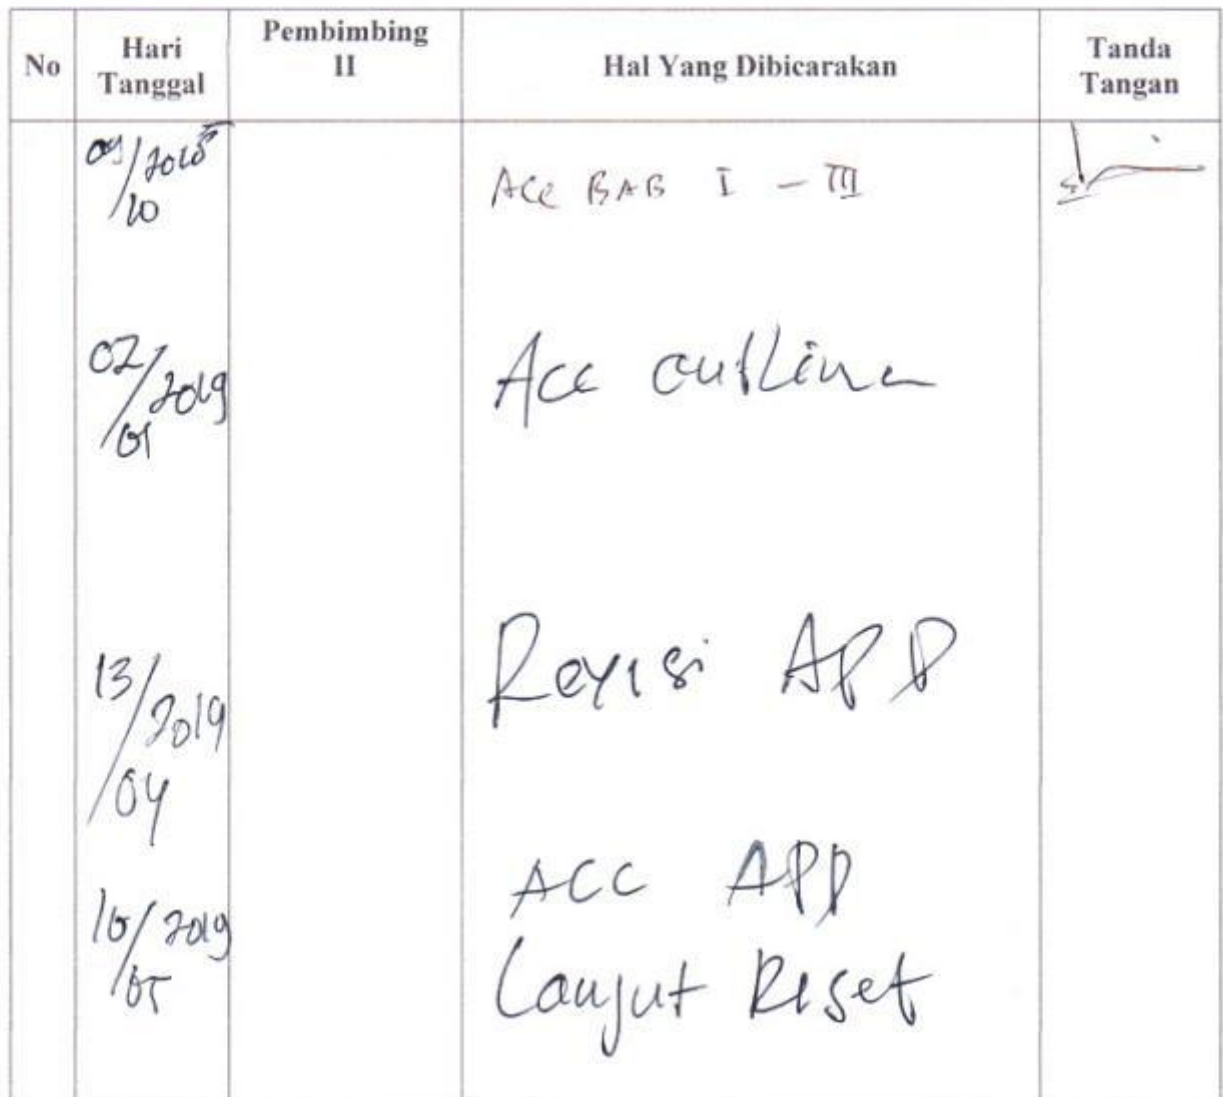 No Hari Tanggal Pembimbing II Hal Yang Dibicarakan Tanda Tangan
09/10 2018 Acc BAB I - III
02/01 2019 Acc outline
13/04 2019 Revisi APD
2019/05 ACC APD
Lanjut Riset